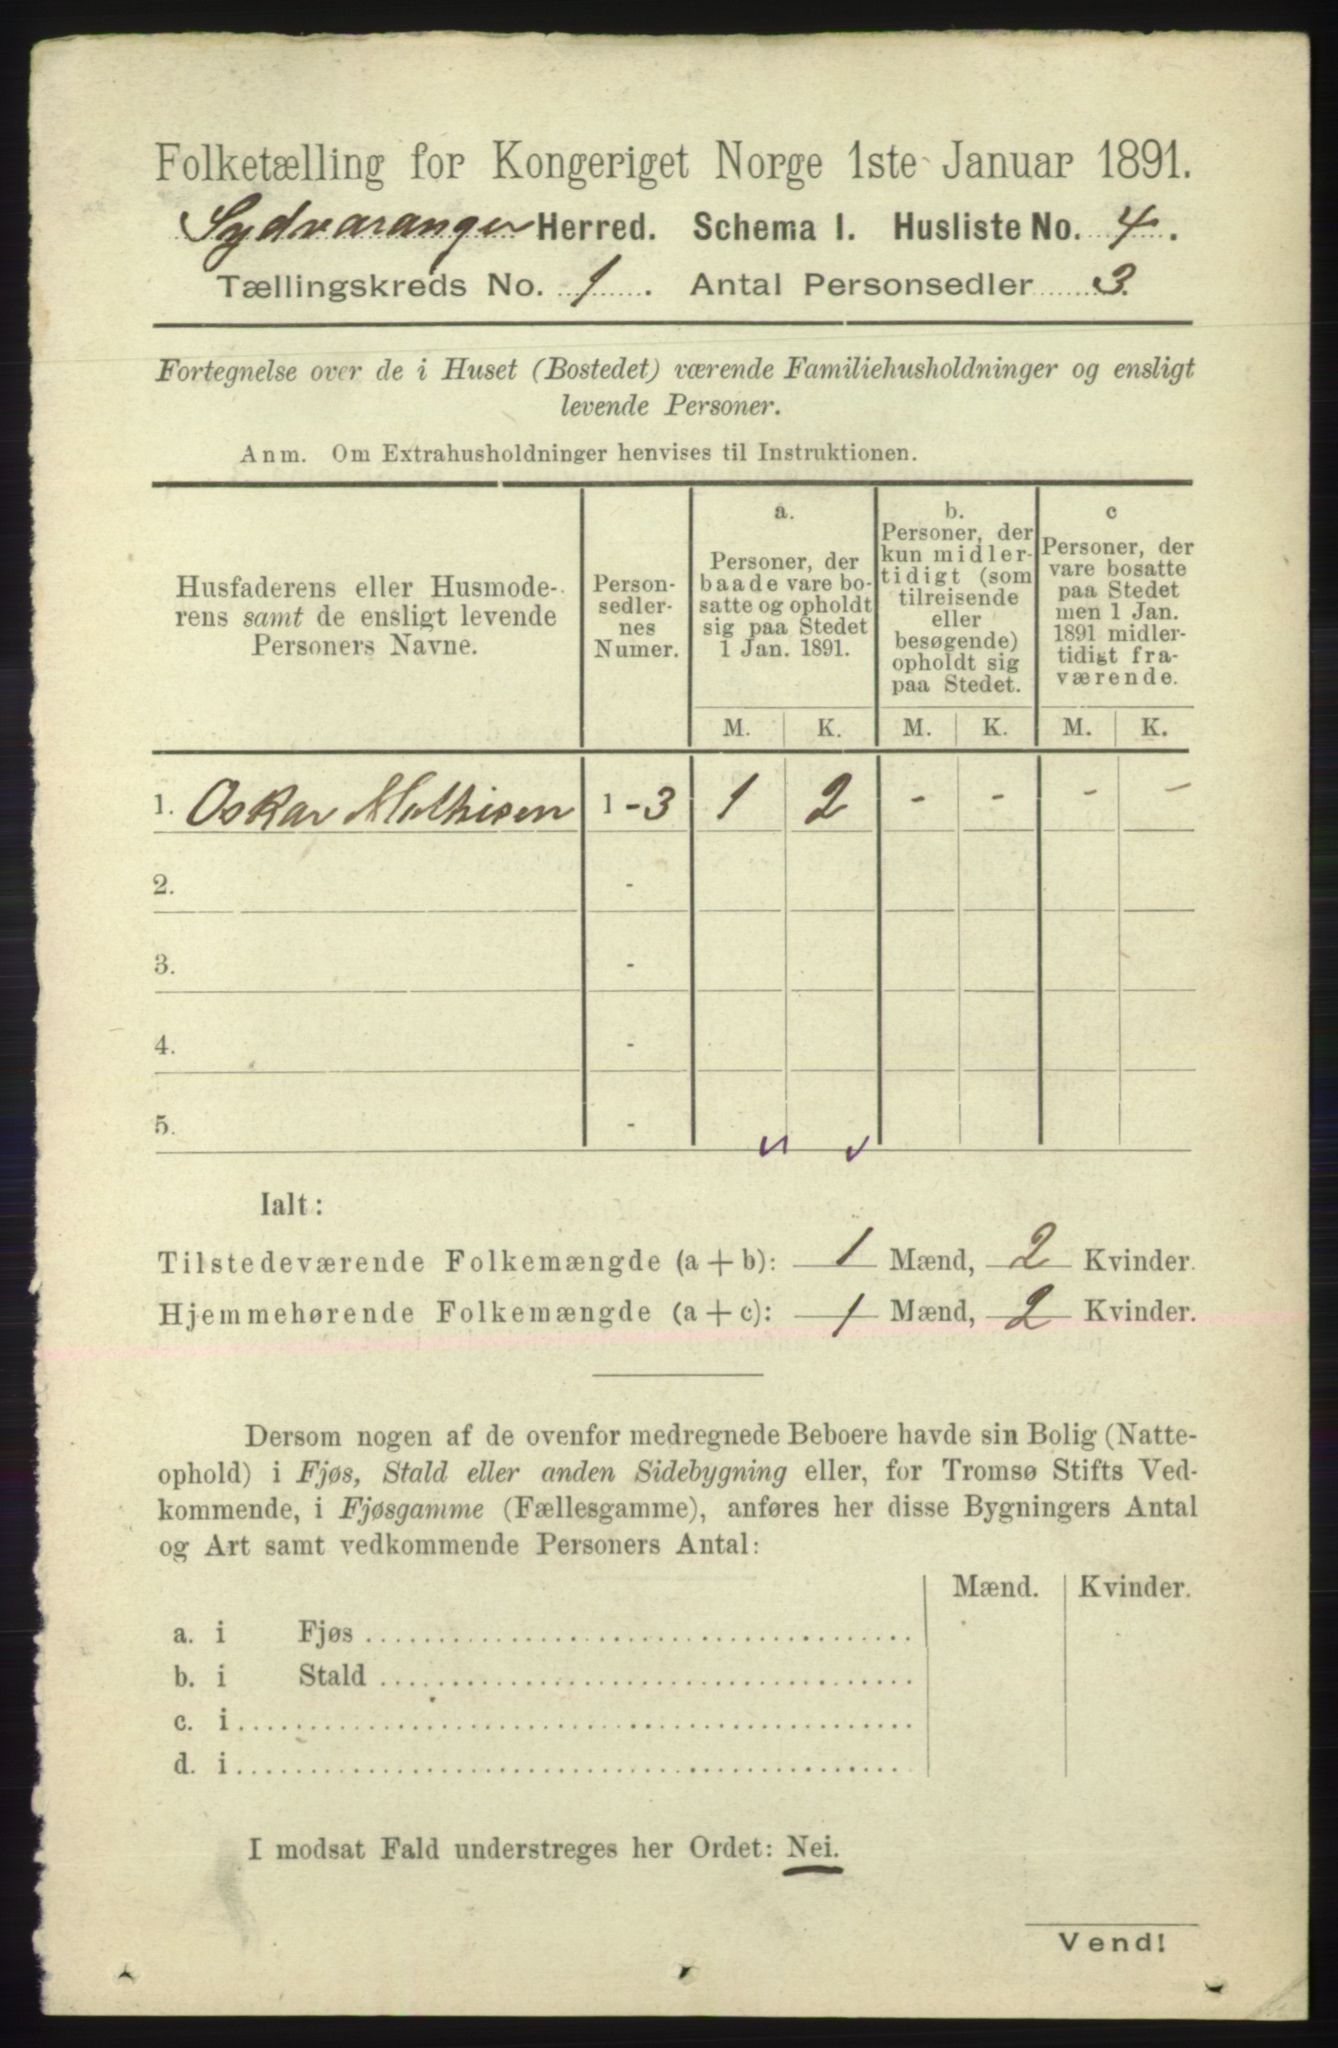 Folketælling for Kongeriget Norge 1ste Januar 1891.
Sydvaranger Herred. Schema I. Husliste No. 4.
Tællingskreds No. 1. Antal Personsedler 3.
Fortegnelse over de i Huset (Bostedet) værende Familiehusholdninger og ensligt
levende Personer.
Anm. Om Extrahusholdninger henvises til Instruktionen.
Husfaderens eller Husmode-
rens samt de ensligt levende
Personers Navne.
Person-
sedler-
nes
Numer.
a.
Personer, der
baade vare bo-
satte og opholdt
sig paa Stedet
1 Jan. 1891.
b.
Personer, der
kun midler-
tidigt (som
tilreisende
eller
besøgende)
opholdt sig
paa Stedet.
c
Personer, der
vare bosatte
paa Stedet
men 1 Jan.
1891 midler-
tidigt fra-
værende.
M. K. M. K. M. K.
1. Oskar Mathisen 1 - 3 1 2 - - - -
2. -
3. -
4. -
5. -
Ialt:
Tilstedeværende Folkemængde (a + b): 1 Mænd, 2 Kvinder.
Hjemmehørende Folkemængde (a + c): 1 Mænd, 2 Kvinder.
Dersom nogen af de ovenfor medregnede Beboere havde sin Bolig (Natte-
ophold) i Fjøs, Stald eller anden Sidebygning eller, for Tromsø Stifts Ved-
kommende, i Fjøsgamme (Fællesgamme), anføres her disse Bygningers Antal
og Art samt vedkommende Personers Antal:
Mænd. Kvinder.
a. i Fjøs
b. i Stald
c. i
d. i
I modsat Fald understreges her Ordet: Nei.
Vend!